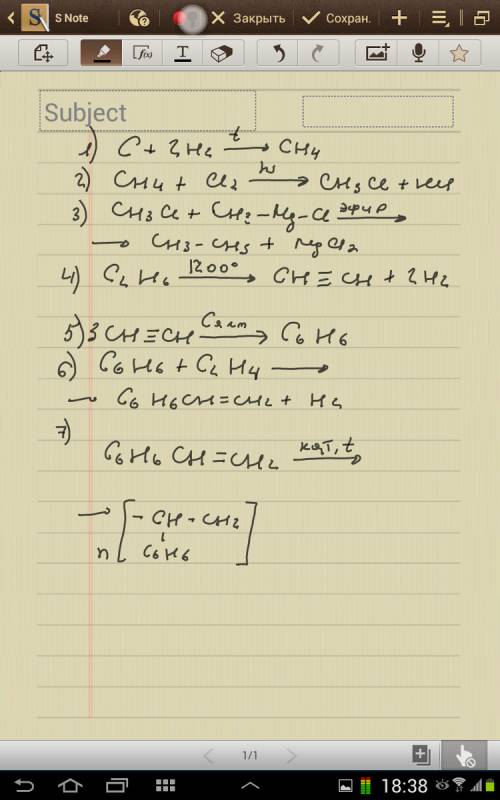 S Note
Закрыть
Сохран.
f(x)
T
Subject
1) C + 2H2 t→ CH4
2) CH4 + Cl2 hν→ CH3Cl + HCl
3) CH3Cl + CH3-Mg-Cl эфир→
→ CH3-CH3 + MgCl2
4) C2H6 1200°→ CH≡CH + 2H2
5) 3CH≡CH Cакт→ C6H6
6) C6H6 + C2H4 →
→ C6H6CH=CH2 + H2
7)
C6H6CH=CH2 кат, t→
→ [-CH-CH2]
n C6H6
1/1
18:38